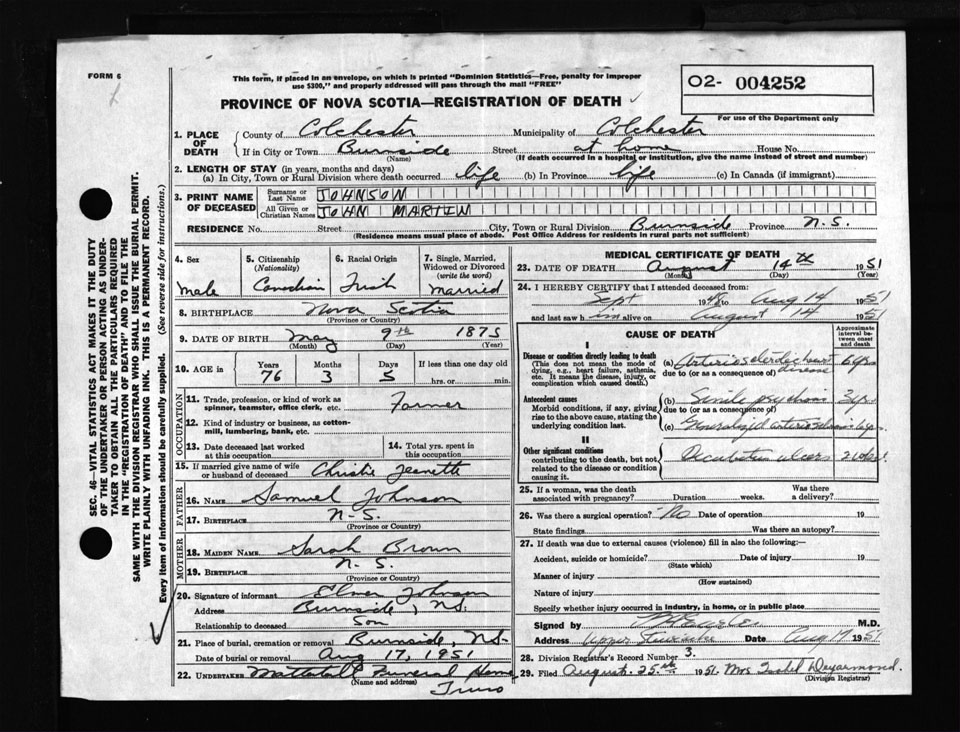 FORM 6
This form, if placed in an envelope, on which is printed "Dominion Statistics—Free, penalty for improper
use $300," and properly addressed will pass through the mail "FREE"
O2- 004252
PROVINCE OF NOVA SCOTIA—REGISTRATION OF DEATH
For use of the Department only
1. PLACE OF DEATH
County of Colchester Municipality of Colchester
If in City or Town Burnside Street at home House No.
(Name) (If death occurred in a hospital or institution, give the name instead of street and number)
2. LENGTH OF STAY (in years, months and days)
(a) In City, Town or Rural Division where death occurred life (b) In Province life (c) In Canada (if immigrant)
3. PRINT NAME OF DECEASED
Surname or Last Name JOHNSON
All Given or Christian Names JOHN MARTIN
RESIDENCE No. Street City, Town or Rural Division Burnside Province N.S.
(Residence means usual place of abode. Post Office Address for residents in rural parts not sufficient)
4. Sex
male
5. Citizenship (Nationality)
Canadian
6. Racial Origin
Irish
7. Single, Married, Widowed or Divorced (write the word)
Married
8. BIRTHPLACE Nova Scotia
(Province or Country)
9. DATE OF BIRTH May 9th 1875
(Month) (Day) (Year)
10. AGE in Years Months Days If less than one day old
76 3 5 hrs. or min.
OCCUPATION
11. Trade, profession, or kind of work as
spinner, teamster, office clerk, etc. Farmer
12. Kind of industry or business, as cotton-
mill, lumbering, bank, etc.
13. Date deceased last worked
at this occupation
14. Total yrs. spent in
this occupation
15. If married give name of wife
or husband of deceased Christie Jeanette
FATHER
16. NAME Samuel Johnson
17. BIRTHPLACE N.S.
(Province or Country)
MOTHER
18. MAIDEN NAME Sarah Brown
19. BIRTHPLACE N.S.
(Province or Country)
20. Signature of informant Elmer Johnson
Address Burnside, N.S.
Relationship to deceased Son
21. Place of burial, cremation or removal Burnside, N.S.
Date of burial or removal Aug 17, 1951
22. UNDERTAKER Mattatall Funeral Home
(Name and address) Truro
MEDICAL CERTIFICATE OF DEATH
23. DATE OF DEATH August 14th 1951
(Month) (Day) (Year)
24. I HEREBY CERTIFY that I attended deceased from:
Sept 1948 to Aug 14 1951
and last saw him alive on August 14 1951
CAUSE OF DEATH
Approximate interval between onset and death
I
Disease or condition directly leading to death
(This does not mean the mode of
dying, e.g., heart failure, asthenia,
etc. It means the disease, injury, or
complication which caused death.)
(a) Arteriosclerotic heart disease 6 yrs
due to (or as a consequence of)
Antecedent causes
Morbid conditions, if any, giving
rise to the above cause, stating the
underlying condition last.
(b) Senile psychosis 3 yrs
due to (or as a consequence of)
(c) Generalized arteriosclerosis
II
Other significant conditions
contributing to the death, but not
related to the disease or condition
causing it.
Decubitus ulcers
25. If a woman, was the death
associated with pregnancy? Duration weeks. Was there a delivery?
26. Was there a surgical operation? No Date of operation 19
State findings Was there an autopsy?
27. If death was due to external causes (violence) fill in also the following:—
Accident, suicide or homicide? Date of injury 19
(State which)
Manner of injury
(How sustained)
Nature of injury
Specify whether injury occurred in industry, in home, or in public place
Signed by M.D.
Address Upper Stewiacke Date Aug 17 1951
28. Division Registrar's Record Number 3.
29. Filed August 25th 1951. Mrs Isobel Deyarmond.
(Division Registrar)
SEC. 46—VITAL STATISTICS ACT MAKES IT THE DUTY
OF THE UNDERTAKER OR PERSON ACTING AS UNDER-
TAKER TO OBTAIN ALL THE PARTICULARS REQUIRED
IN THE "REGISTRATION OF DEATH" AND TO FILE THE
SAME WITH THE DIVISION REGISTRAR WHO SHALL ISSUE THE BURIAL PERMIT.
WRITE PLAINLY WITH UNFADING INK. THIS IS A PERMANENT RECORD.
Every item of information should be carefully supplied. (See reverse side for instructions.)